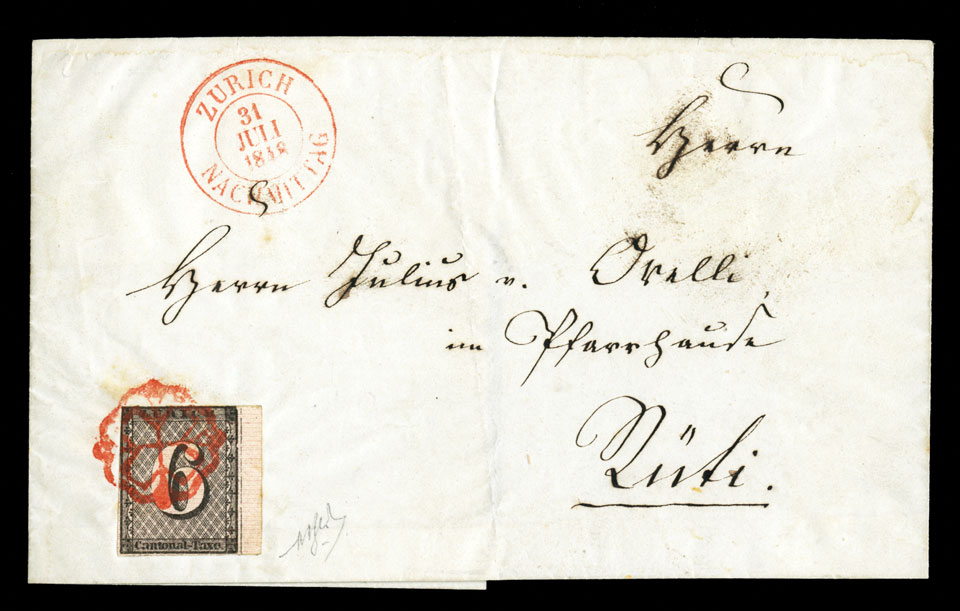 ZURICH
31
JULI
1848
NACHMITTAG
Herrn
Herrn Julius v. Orelli
im Pfarrhause
Rüti.
ZURICH
6
Cantonal-Taxe.